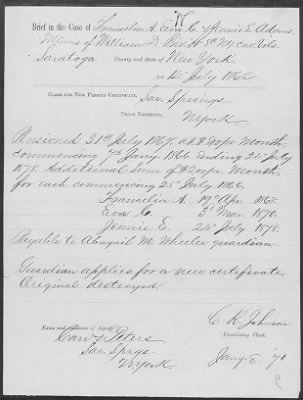 Brief in the Case of Franselin A. Eva C. & Jennie E. Adams
Minors of William D. Priv. H 5th N.Y. Cav. Vols.
Saratoga County and State of New York
Act 14 July 1862
Claim for New Pension Certificate, Sar. Springs
Post Residing, N. York
Pensioned 31st July 1867, at $8 per Month,
commencing 7th Jany. 1866 Ending 24th July
1878. Additional Sum of $2.00 pr Month
for each commencing 25th July 1866.
Franselin A. 19th Apr. 1868.
Eva C. 3d Mar. 1870.
Jennie E. 24th July 1878.
Payable to Abagail M. Wheeler guardian
Guardian applies for a new certificate
Original destroyed
C. R. Johnson
Examining Clerk.
Name and Residence of Agent,
Carr & Peters
Sar. Sprgs.
N. York
Jany. '71